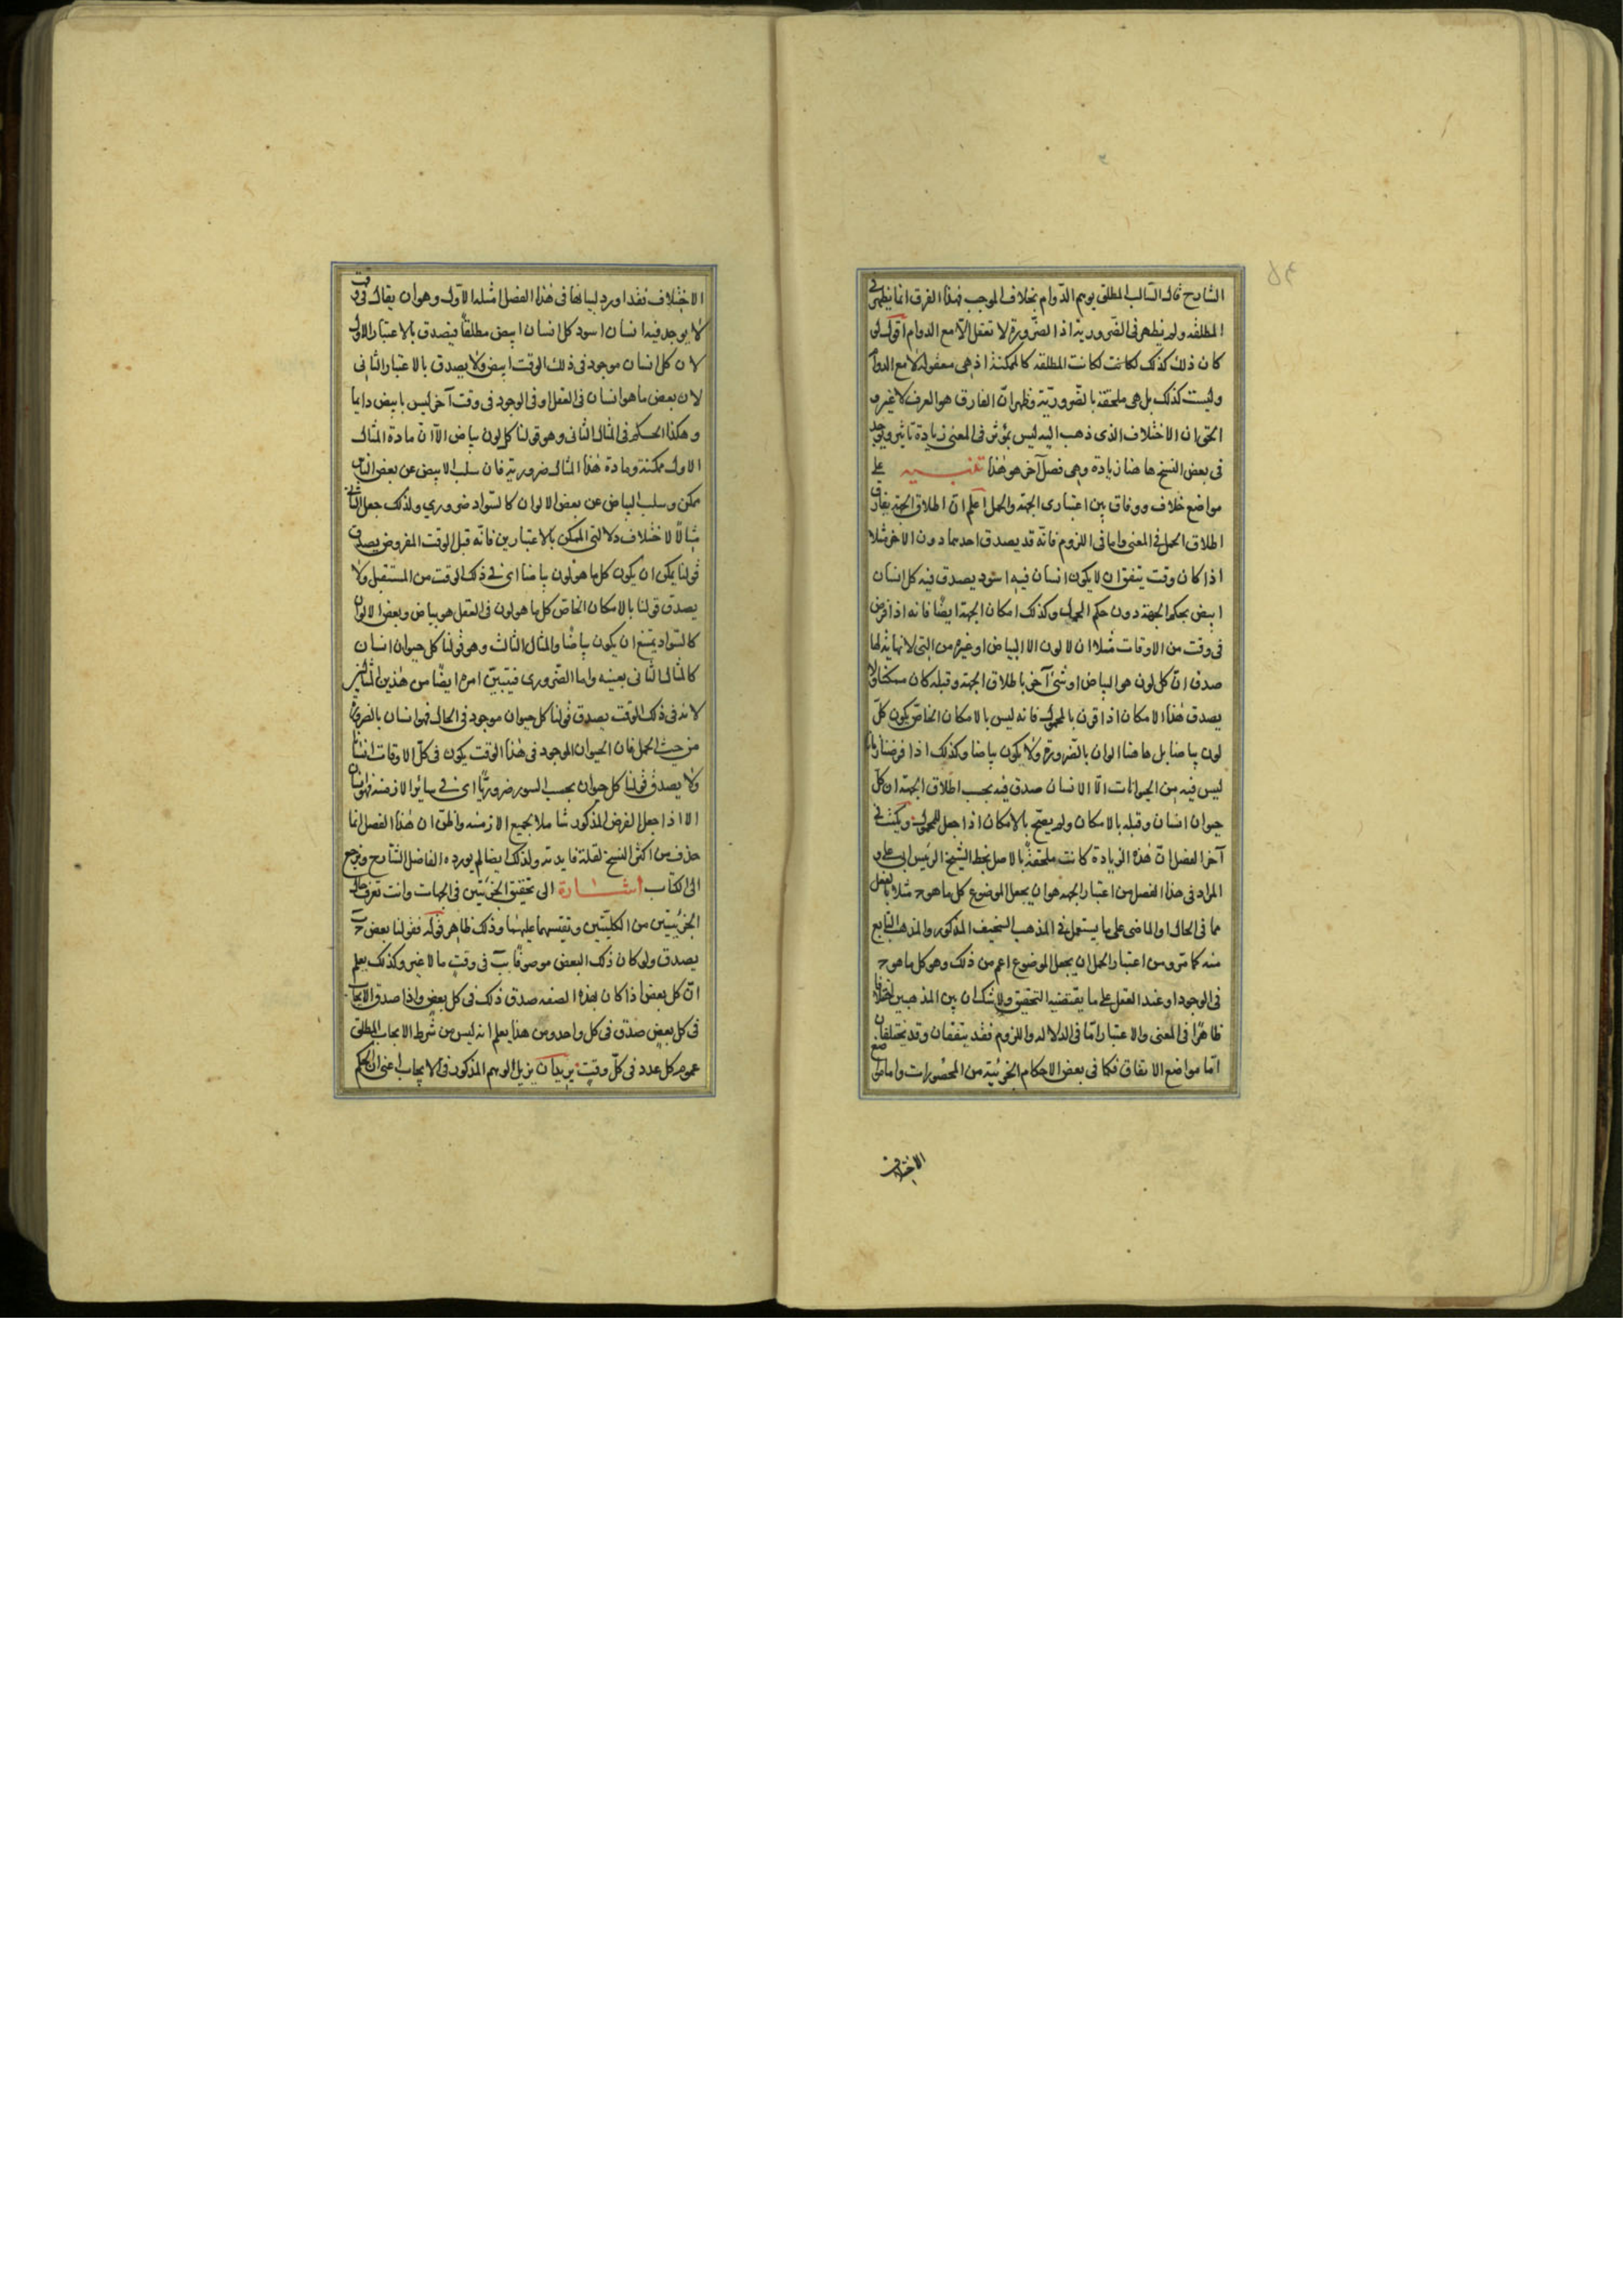 الشارح قال السالب المطلق يوهم الدوام بخلاف الموجب فهذا الفرق انما يظهر في
المطلقه ولم يظهر في الضروريه اذ الضرورة لا تعقل الا مع الدوام اقول لو
كان ذلك كذلك لكانت المطلقه كالممكنة اذ هي معقوله لا مع الدوام
وليست كذلك بل هي ملحقة بالضرورية وظهر ان الفارق هو العرف لا غير و
الحق ان الاختلاف الذي ذهب اليه ليس بمؤثر في المعنى زيادة تاثير ويوجد
في بعض النسخ هاهنا زيادة وهي فصل آخر هو هذا تنبيه على
مواضع خلاف ووفاق بين اعتباري الجهة والحمل اعلم ان اطلاق الجهة يفارق
اطلاق الحمل في المعنى واما في اللزوم فانه قد يصدق احدهما دون الاخر مثلا
اذا كان وقت يتفق ان لا يكون انسان فيه اسود يصدق فيه كل انسان
ابيض بحكم الجهة دون حكم الحمل وكذلك امكان الجهة ايضًا فانه اذا فرض
في وقت من الاوقات مثلا ان لا لون الا البياض او غيره من التي لا نهاية لها
صدق ان كل لون هو البياض او شئ آخر باطلاق الجهة وقبله كان ممكنا ولا
يصدق هذا الامكان اذا قرن بالمحمول فانه ليس بالامكان الخاص يكون كل
لون بياضا بل هاهنا الوان بالضرورة ولا يكون بياضا وكذلك اذا فرضنا زمانا
ليس فيه من الحيوانات الا الانسان صدق فيه بحسب اطلاق الجهة ان كل
حيوان انسان وقبله بالامكان ولم يصح بالامكان اذا جعل للمحمول وكتب في
آخر الفصل ان هذه الزيادة كانت ملحقة بالاصل بخط الشيخ الرئيس ابي علي و
المراد في هذا الفصل من اعتبار الجهة هو ان يجعل الموضوع كل ما هو ج مثلا بالفعل
مما في الحال او الماضي على ما يستعمل في المذهب السخيف المذكور والمذهب التابع
منه كما مر ومن اعتبار الحمل ان يجعل الموضوع اعم من ذلك وهو كل ما هو ج
في الوجود او عند العقل على ما يقتضيه التحقيق ولا شك ان بين المذهبين اختلافا
ظاهرًا في المعنى والاعتبار اما في الدلاله واللزوم فقد يتفقان وقد يختلفان
اما مواضع الاتفاق فكما في بعض الاحكام الجزئية من المحصورات واما مواضع
الاختلاف
الاختلاف فقد اورد لبيانها في هذا الفصل امثلة الاول وهو ان يقال في وقت
لا يوجد فيه انسان اسود كل انسان ابيض مطلقًا فيصدق بالاعتبار الاول
لان كل انسان موجود في ذلك الوقت ابيض ولا يصدق بالاعتبار الثاني
لان بعض ما هو انسان في العقل او في الوجود في وقت آخر ليس بابيض دايما
وهكذا الحكم في المثال الثاني وهو قولنا كل لون بياض الا ان مادة المثال
الاول ممكنة ومادة هذا المثال ضرورية فان سلب الابيض عن بعض الناس
ممكن وسلب البياض عن بعض الالوان كالسواد ضروري ولذلك جعل الثاني
مثالًا لاختلاف دلالتي الممكن بالاعتبارين فانه قبل الوقت المفروض يصدق
قولنا يمكن ان يكون كل ما هو لون بياضا اي في ذلك الوقت من المستقبل ولا
يصدق قولنا بالامكان الخاص كل ما هو لون في العقل هو بياض وبعض الالوان
كالسواد يمتنع ان يكون بياضًا والمثال الثالث وهو قولنا كل حيوان انسان
كالمثال الثاني بعينه واما الضروري فيتبين امره ايضًا من هذين المثالين
لانه في ذلك الوقت يصدق قولنا كل حيوان موجود في الحال فهو انسان بالضرورة
من حيث الحمل فان الحيوان الموجود في هذا الوقت يكون في كل الاوقات انسانا
ولا يصدق قولنا كل حيوان بحسب السور ضروريًا اي في سائر الازمنة فهو انسان
الا اذا جعل الفرض المذكور شاملا بجميع الازمنه والحق ان هذا الفصل انما
حذف من اكثر النسخ لقلة فايدته ولذلك ايضا لم يورده الفاضل الشارح ونرجع
الى الكتاب اشارة الى تحقيق الجزئيتين في الجهات وانت تعرف حال
الجزئيتين من الكليتين وتقيسهما عليهما وذلك ظاهر قوله فقولنا بعض ج ب
يصدق ولو كان ذلك البعض موصوفًا بـ ب في وقتٍ ما لا غير وكذلك يعلم
ان كل بعض اذا كان بهذه الصفه صدق ذلك في كل بعضٍ واذا صدق الايجاب
في كل بعضٍ صدق في كل واحد ومن هذا يعلم انه ليس من شرط الايجاب المطلق
عموم كل عدد في كل وقتٍ يريد ان يزيل الوهم المذكور في الايجاب اعني ان الحكم